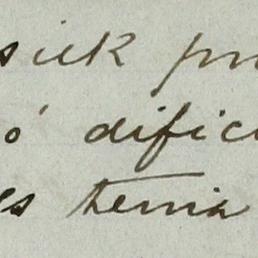 siek pr
ó dific
es tenia